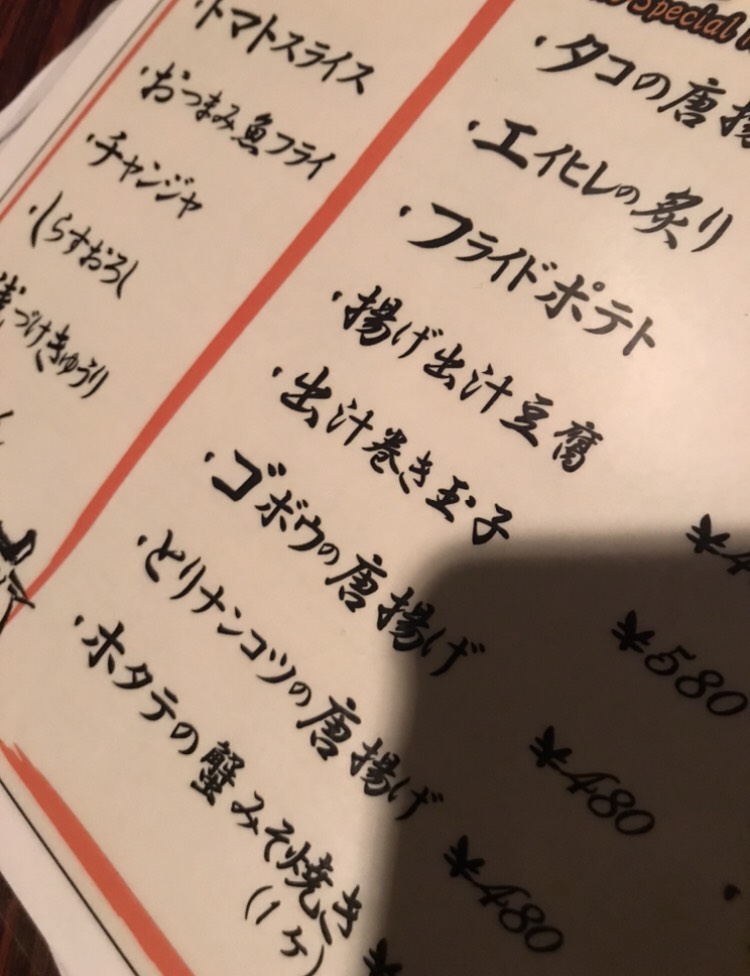 ・トマトスライス
・おつまみ魚フライ
・チャンジャ
・しらすおろし
浅づけきゅうり
Special
・タコの唐揚
・エイヒレの炙り
・フライドポテト
・揚げ出汁豆腐
・出汁巻き玉子
・ゴボウの唐揚げ
・とりナンコツの唐揚げ
・ホタテの蟹みそ焼き
(1ヶ)
¥4
¥580
¥480
¥480
¥